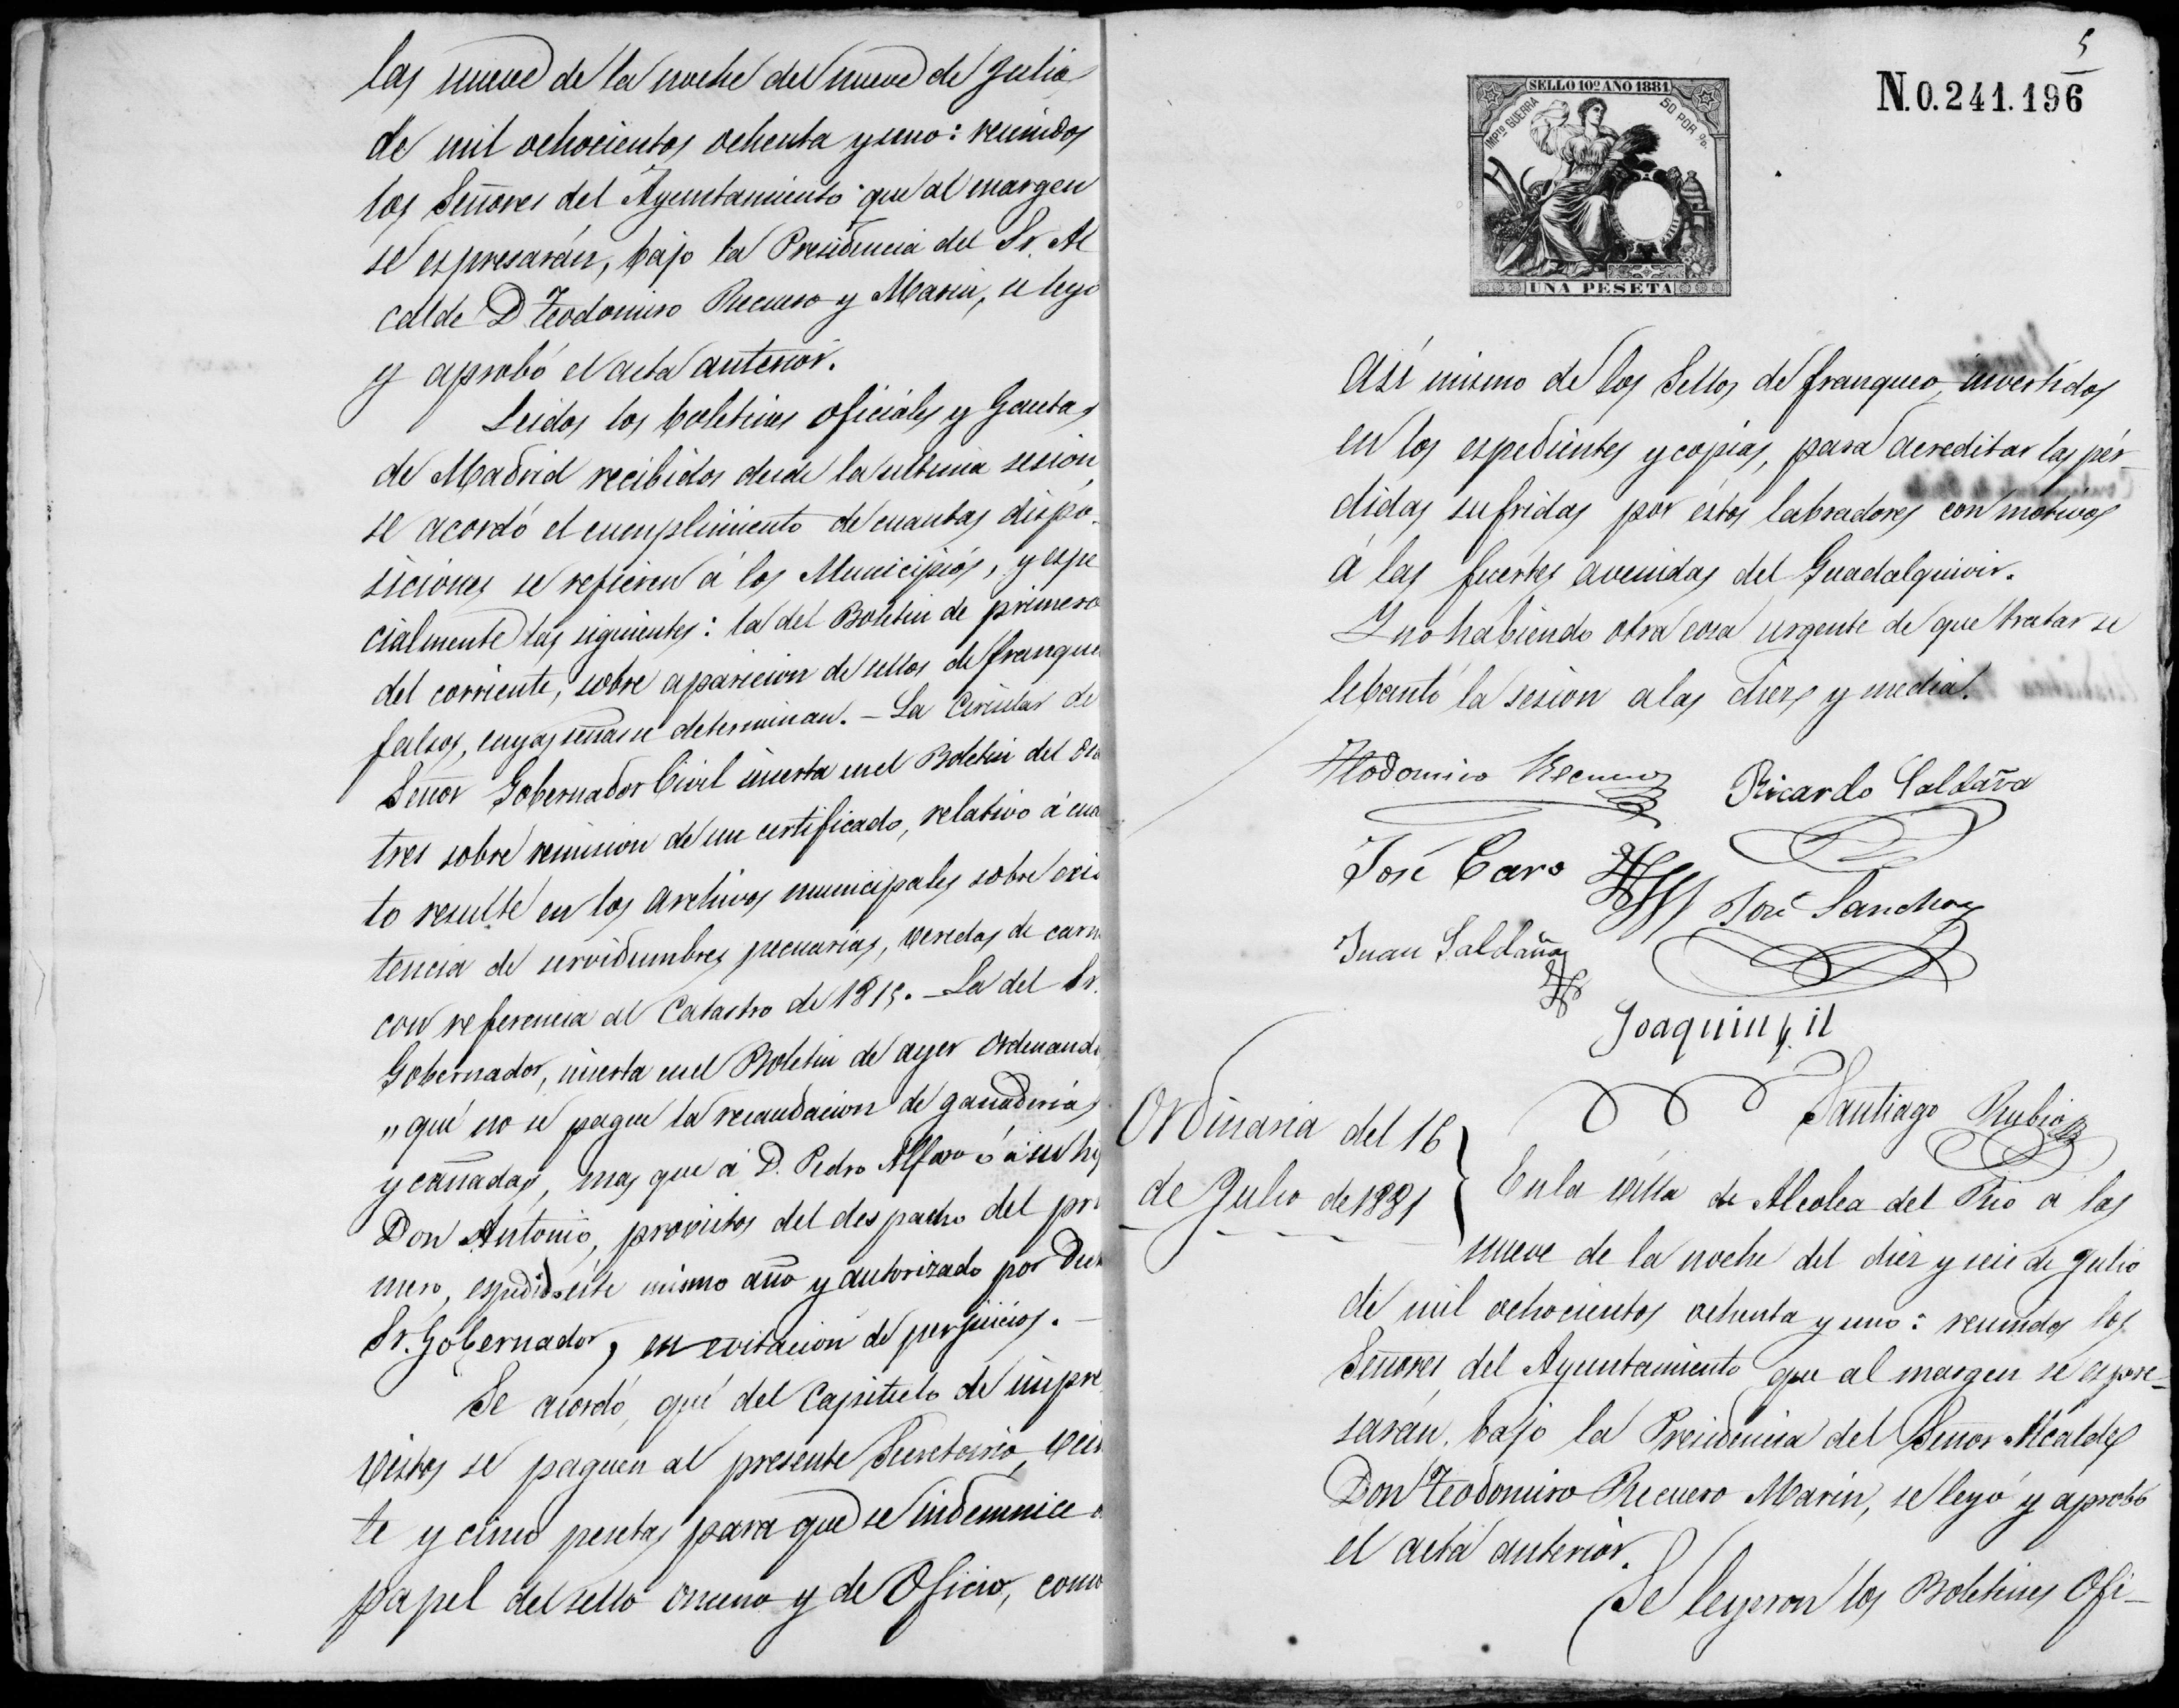 las nueve de la noche del nueve de Julio
de mil ochocientos ochenta y uno: reunidos
los Señores del Ayuntamiento que al margen
se espresarán, bajo la Presidencia del Sr. Al
calde D. Teodomiro Recuero y Marin, se leyó
y aprobó el acta anterior.
Leidos los boletines oficiales y Gacetas
de Madrid recibidos desde la ultima sesion,
se acordó el cumplimiento de cuantas dispo-
siciones se refieren á los Municipios, y espe
cialmente las siguientes: la del Boletin de primero
del corriente, sobre aparicion de sellos de franqueo
falsos, cuyas señas se determinan. - La Circular del
Señor Gobernador Civil inserta en el Boletin del dia
tres sobre remision de un certificado, relativo á cuan
to resulte en los archivos municipales sobre exis
tencia de servidumbres pecuarias, veredas de carne
con referencia al Catastro de 1815. - La del Sr.
Gobernador, inserta en el Boletin de ayer Ordenando
"que no se pague la recaudacion de ganaderias
y cañadas, mas que á D. Pedro Alfaro ó á su hijo
Don Antonio, provistos del despacho del pri
mero, espedido este mismo año y autorizado por Dicho
Sr. Gobernador, en evitacion de perjuicios. -
Se acordó, que del Capitulo de impre
vistos se paguen al presente Secretario, vein
te y cinco pesetas para que se indemnice
papel del sello once­no y de Oficio, como
5
N.0.241.196
SELLO 10º AÑO 1881
IMPTO GUERRA 50 POR %.
UNA PESETA
Así mismo de los Sellos de franqueo, invertidos
en los espedientes y copias, para acreditar las pér-
didas sufridas por éstos labradores con motivos
á las fuertes avenidas del Guadalquivir.
Y no habiendo otra cosa urgente de que tratar se
lebantó la sesion a las diez y media.
Teodomiro Recuero Ricardo Saldaña
José Caro José Sanchez
Juan Saldaña
Joaquin Gil
Santiago Rubio
Ordinaria del 16
de Julio de 1881
En la villa de Alcolea del Rio a las
nueve de la noche del diez y seis de Julio
de mil ochocientos ochenta y uno: reunidos los
Señores del Ayuntamiento que al margen se espre-
sarán, bajo la Presidencia del Señor Alcalde
Don Teodomiro Recuero Marin, se leyó y aprobó
el acta anterior.
Se leyeron los Boletines Ofi-